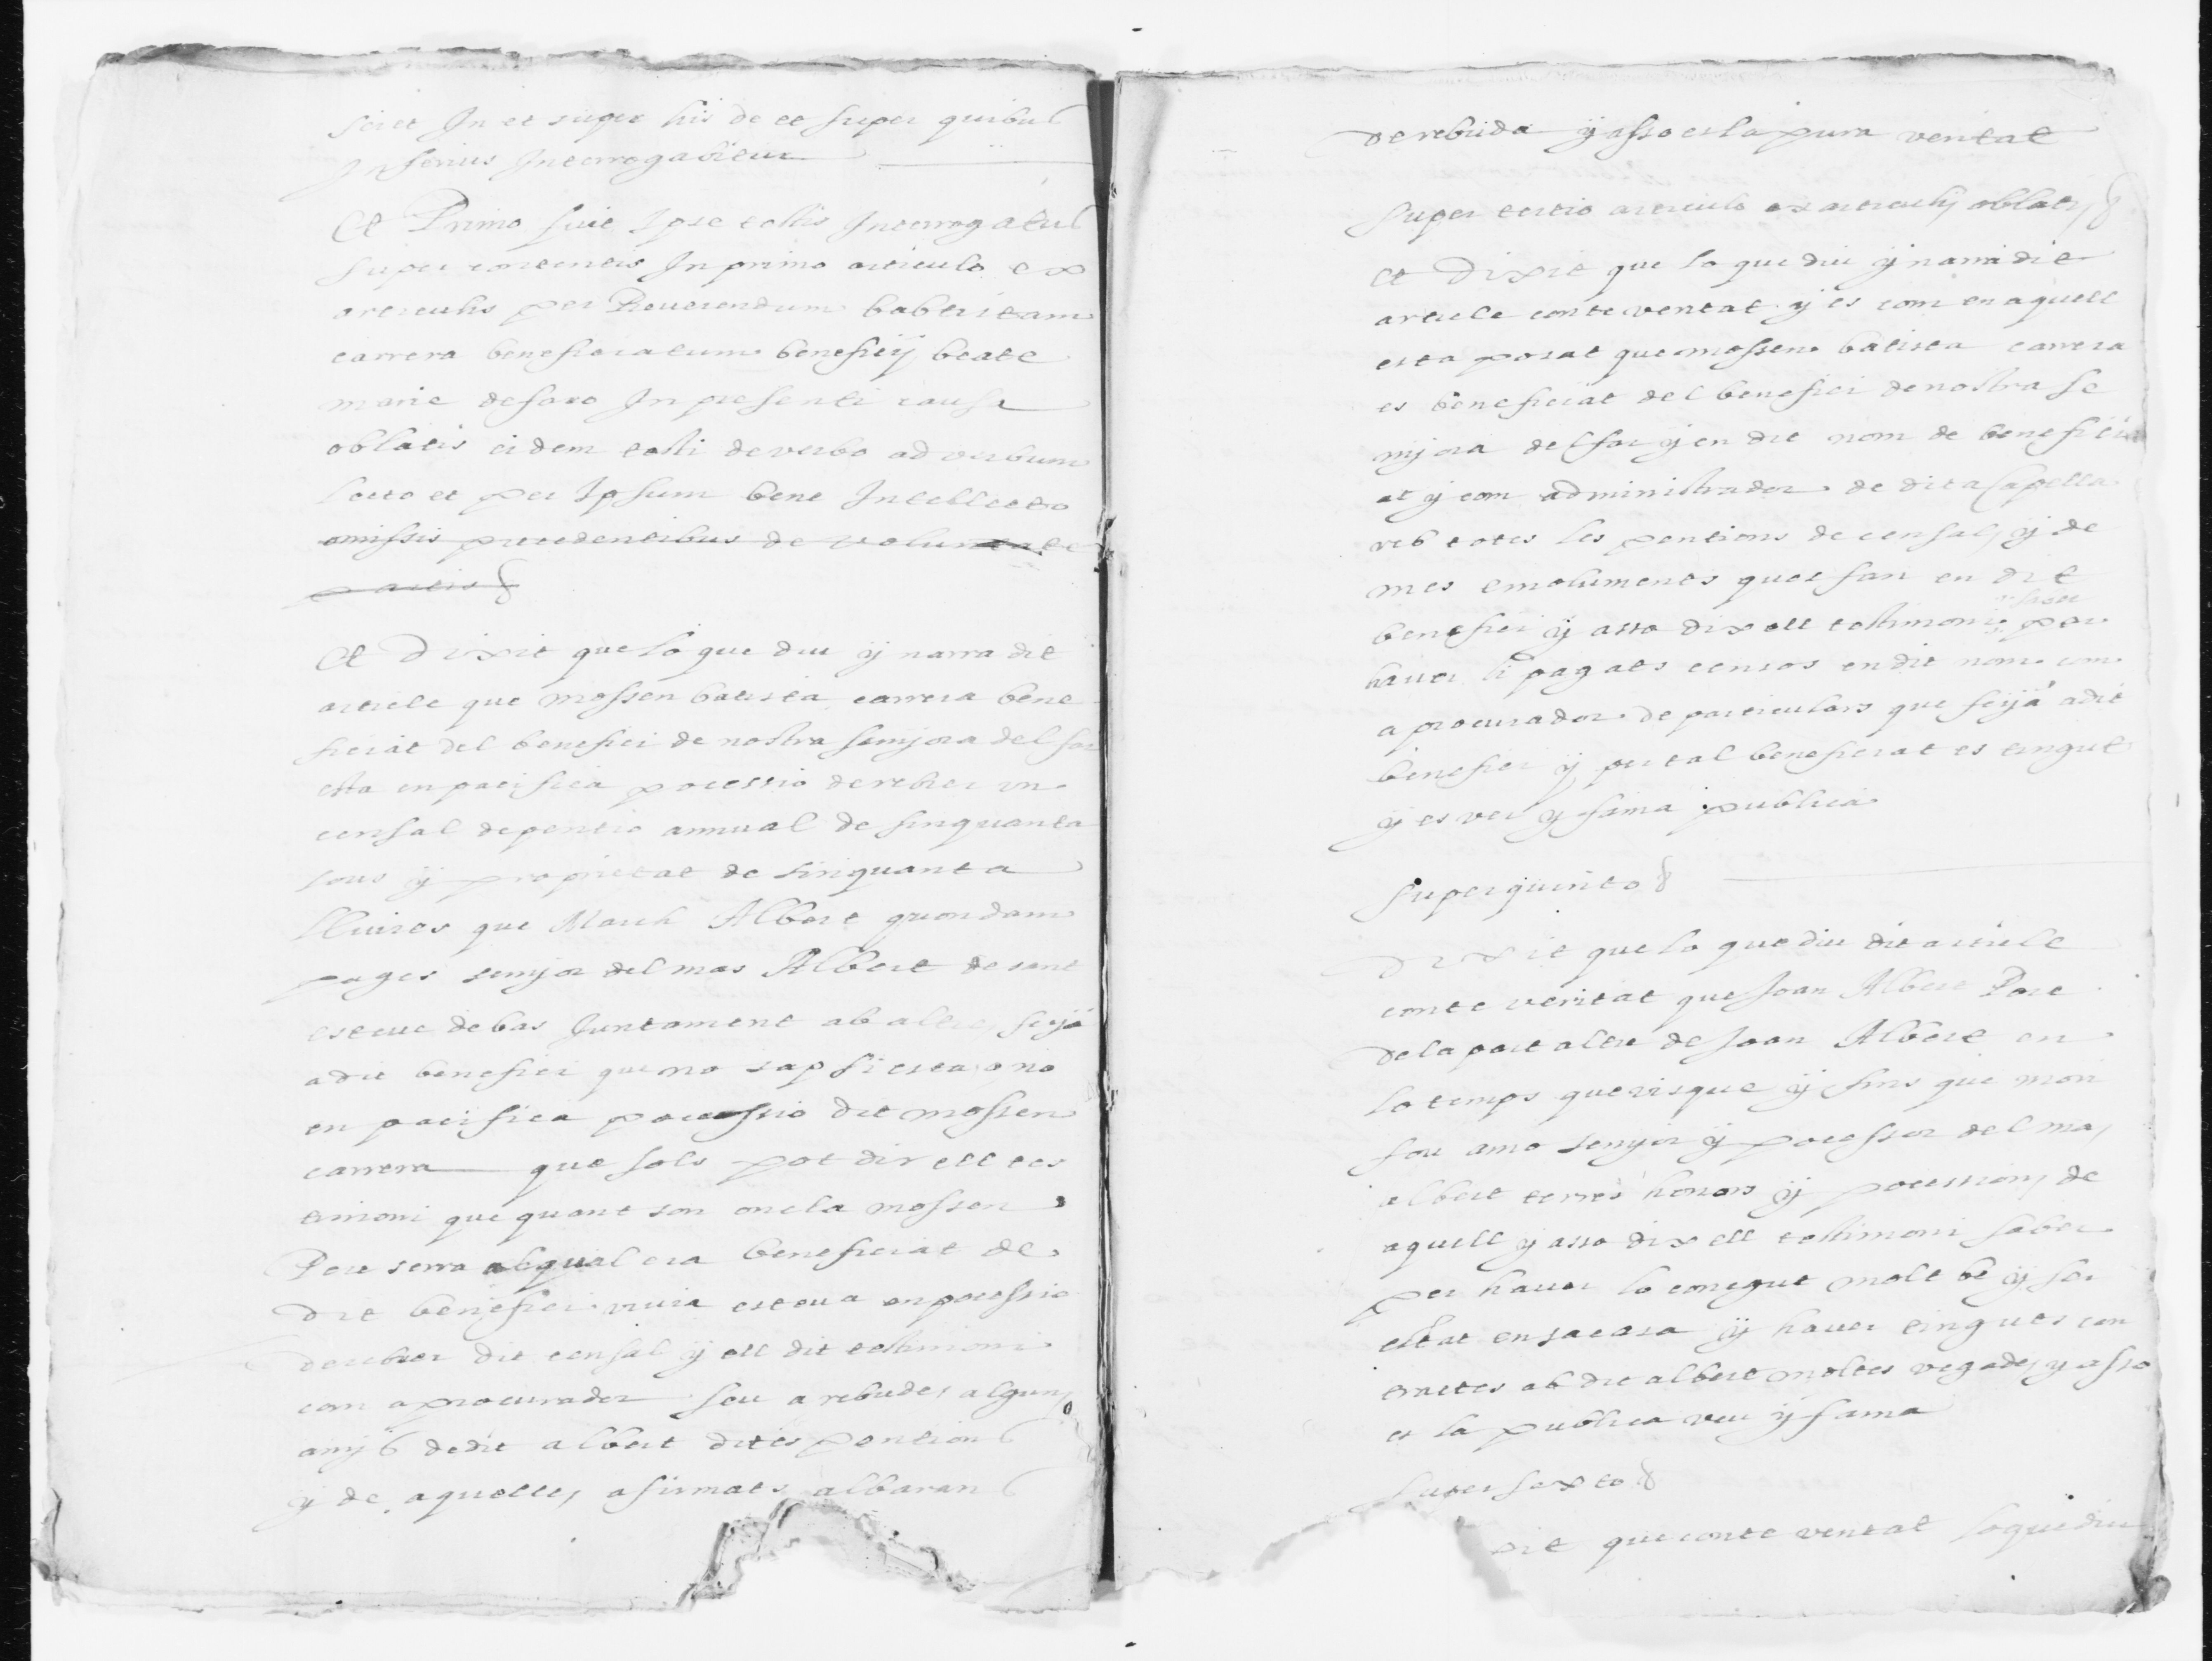 sciet In et super his de et super quibus
Inferius Interrogabitur
Et Primo fuit Ipse testis Interrogatus
super contentis In primo articulo ex
articulis per Reverendum babtistam
carrera beneficiatum beneficij beate
marie desaro In presenti causa
oblatis eidem testi de verbo ad verbum
lecto et per Ipsum bene Intellecto
omissis precedentibus de voluntate
partis
Et Dixit que lo que diu ÿ narra dit
article que mossen batista carrera bene
ficiat del benefici de nostra senyora del far
esta en pacifica pocessio de rebrer un
censal de pentio annual de sinquanta
sous ÿ proprietat de sinquanta
lliures que March Albert quondam
pages senyor del mas Albert de sent
esteve de bas Juntament ab altres feÿa
a dit benefici que no sap si esta o no
en pacifica pocessio dit mossen
carrera que sols pot dir ell tes
timoni que quant son oncla mossen
Pere serra lo qual era beneficiat de
dit benefici vivia estava en pocessio
de rebrer dit censal ÿ ell dit testimoni
com a procurador seu a rebudes alguns
anÿs de dit albert dites pentions
ÿ de aquelles a firmats albarans
de rebuda ÿ asso es la pura veritat
super tertio articulo ex articulis oblatis
Et Dixit que lo que diu ÿ narra dit
article conte veritat ÿ es com en aquell
esta posat que mossen batista carrera
es beneficiat del benefici de nostra se
nyora del far ÿ en dit nom de benefici
at ÿ com administrador de dita Capella
reb totes les pentions de censals ÿ de
mes emoluments ques fan en dit
benefici ÿ asso dix ell testimoni saber per
haver li pagats censos en dit nom com
a procurador de particulars que feÿa a dit
benefici ÿ per tal beneficiat es tingut
ÿ es veu ÿ fama publica
super quinto
Dixit que lo que diu dit article
conte veritat que Joan Albert Pare
de la part altre de Joan Albert en
lo temps que visque ÿ fins que mori
fou amo senyor ÿ pocessor del mas
albert terres honors ÿ pocessions de
aquell ÿ asso dix ell testimoni saber
per haver lo conegut molt be ÿ ser
estat en sa casa ÿ haver tingues con
tractes ab dit albert moltes vegades ÿ asso
es la publica veu ÿ fama
super sexto
xit que conte veritat lo que diu